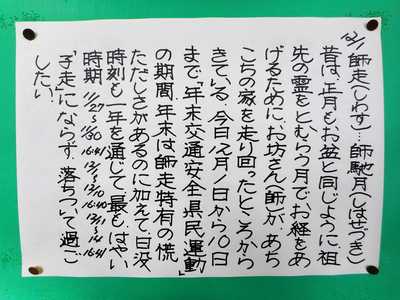 12/1 師走(しわす)…師馳月(しはせづき)
昔は、正月もお盆と同じように、祖
先の霊をとむらう月で、お経をあ
げるために、お坊さん(師)が、あち
こちの家を走り回ったところから
きている。今日12月1日から10日
まで「年末交通安全県民運動」
の期間。年末は師走特有の慌
ただしさがあるのに加えて、日没
時刻も一年を通じて最もはやい
時期 11/27〜11/30 16:41 12/1〜12/10 16:40 12/11〜12/14 16:41
「子走」にならず、落ちついて過ご
したい。